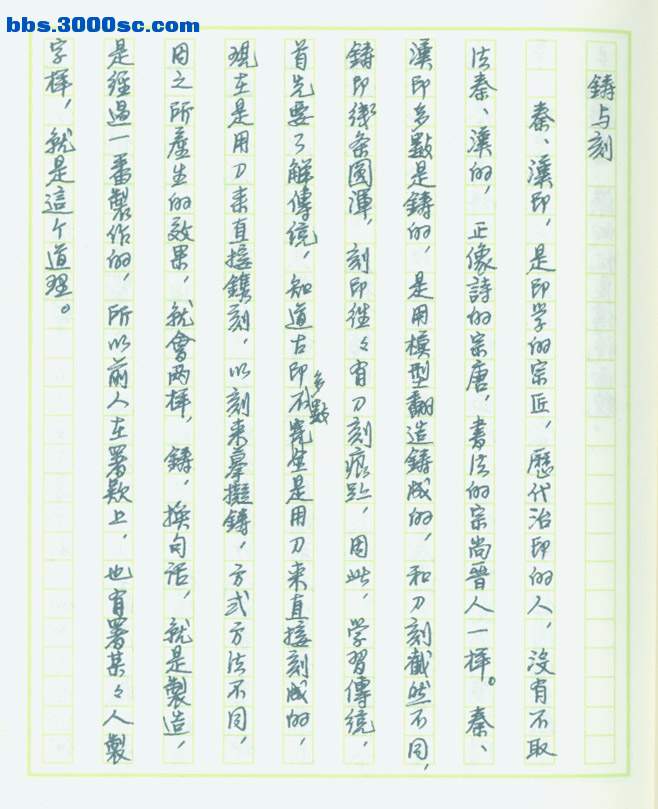 bbs.3000sc.com
鑄与刻
秦、漢印，是印学的宗匠，歷代治印的人，沒有不取
法秦、漢的，正像詩的宗唐，書法的宗尚晉人一样。秦、
漢印多數是鑄的，是用模型翻造鑄成的，和刀刻截然不同，
鑄印綫条圆渾，刻印往々有刀刻痕跡，因此，学習傳統，
首先要了解傳统，知道古印多數不完全是用刀来直接刻成的，
現在是用刀来直接鐫刻，以刻来摹擬鑄，方式方法不同，
因之所產生的效果，就會两样，鑄，换句话，就是製造，
是经過一番製作的，所以前人在署款上，也有署某々人製
字样，就是這个道理。